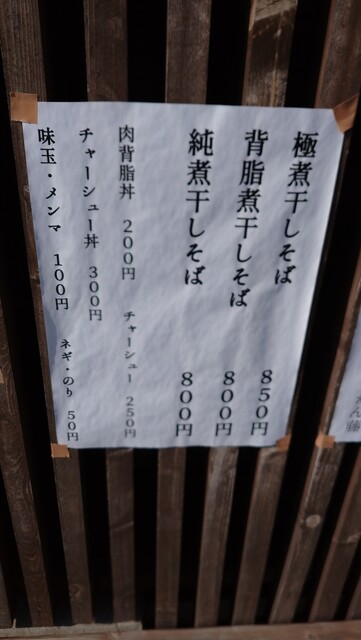 極煮干しそば　850円
背脂煮干しそば　800円
純煮干しそば　800円
肉背脂丼　200円　チャーシュー　250円
チャーシュー丼　300円
味玉・メンマ　100円　ネギ・のり　50円